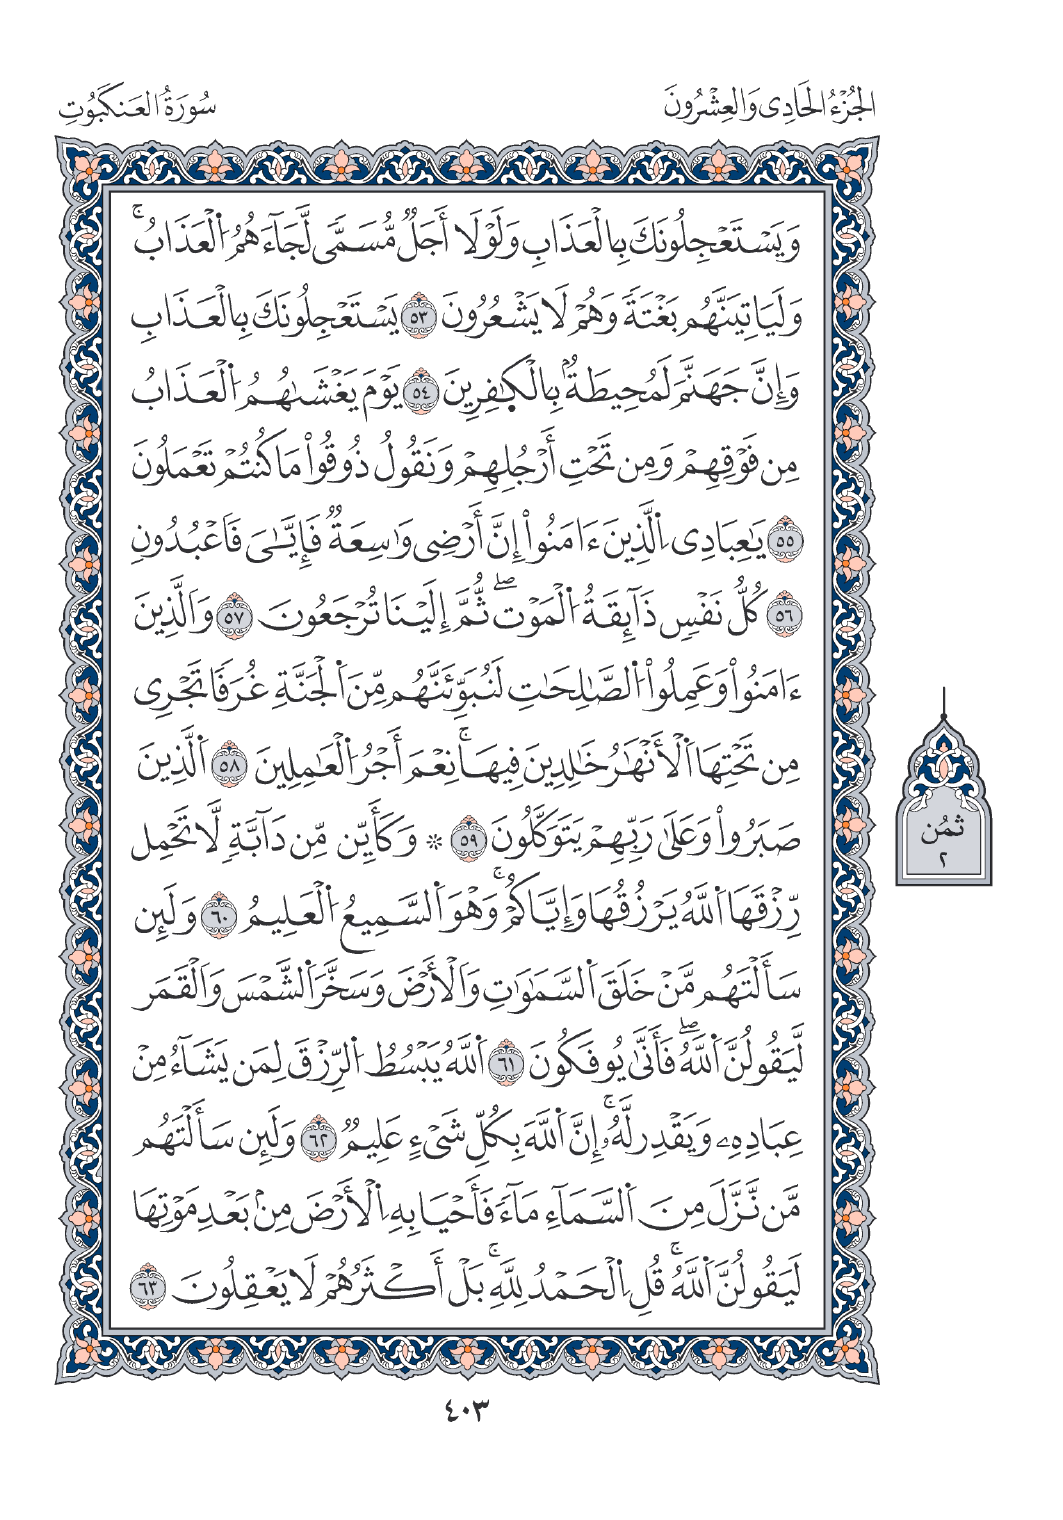 الجُزْءُ الحَادِى وَالعِشْرُونَ
سُورَةُ العَنكَبُوتِ
وَيَسْتَعْجِلُونَكَ بِالْعَذَابِ وَلَوْلَا أَجَلٌ مُّسَمًّى لَّجَآءَهُمُ الْعَذَابُ ۚ
وَلَيَاتِيَنَّهُم بَغْتَةً وَهُمْ لَا يَشْعُرُونَ ٥٣ يَسْتَعْجِلُونَكَ بِالْعَذَابِ
وَإِنَّ جَهَنَّمَ لَمُحِيطَةٌۢ بِالْكَٰفِرِينَ ٥٤ يَوْمَ يَغْشَىٰهُمُ الْعَذَابُ
مِن فَوْقِهِمْ وَمِن تَحْتِ أَرْجُلِهِمْ وَنَقُولُ ذُوقُواْ مَا كُنتُمْ تَعْمَلُونَ
٥٥ يَٰعِبَادِى الَّذِينَ ءَامَنُواْ إِنَّ أَرْضِى وَٰسِعَةٌ فَإِيَّٰىَ فَاعْبُدُونِ
٥٦ كُلُّ نَفْسٍ ذَآئِقَةُ الْمَوْت ۖ ثُّمَّ إِلَيْنَا تُرْجَعُونَ ٥٧ وَالَّذِينَ
ءَامَنُواْ وَعَمِلُواْ الصَّٰلِحَٰت لَنُبَوِّئَنَّهُم مِّنَ الْجَنَّةِ غُرَفًا تَجْرِى
مِن تَحْتِهَا الْأَنْهَٰرُ خَٰلِدِينَ فِيهَا ۚ نِعْمَ أَجْرُ الْعَٰمِلِينَ ٥٨ الَّذِينَ
صَبَرُواْ وَعَلَىٰ رَبِّهِمْ يَتَوَكَّلُونَ ٥٩ ۞ وَكَأَيِّن مِّن دَآبَّةٍ لَّا تَحْمِل
رِّزْقَهَا اللَّهُ يَرْزُقُهَا وَإِيَّاكُمْ ۚ وَهْوَ السَّمِيعُ الْعَلِيمُ ٦٠ وَلَئِن
سَأَلْتَهُم مَّنْ خَلَقَ السَّمَٰوَٰتِ وَالْأَرْضَ وَسَخَّرَ الشَّمْسَ وَالْقَمَر
لَّيَقُولُنَّ اللَّهُ ۖ فَأَنَّىٰ يُوفَكُونَ ٦١ اللَّهُ يَبْسُطُ الرِّزْقَ لِمَن يَشَآءُ مِنْ
عِبَادِهِۦ وَيَقْدِر لَّهُۥ ۚ إِنَّ اللَّهَ بِكُلِّ شَىْءٍ عَلِيمٌ ٦٢ وَلَئِن سَأَلْتَهُم
مَّن نَّزَّلَ مِنَ السَّمَآءِ مَآءً فَأَحْيَا بِهِ الْأَرْضَ مِنۢ بَعْدِ مَوْتِهَا
لَيَقُولُنَّ اللَّهُ ۚ قُلِ الْحَمْدُ لِلَّهِ ۚ بَلْ أَكْثَرُهُمْ لَا يَعْقِلُونَ ٦٣
ثمُن
٢
٤٠٣